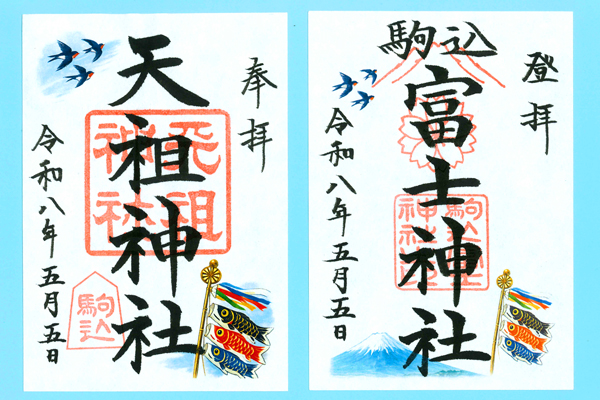 奉拝
天祖神社
天祖神社
駒込
令和八年五月五日
登拝
駒込
富士神社
駒込富士神社
令和八年五月五日